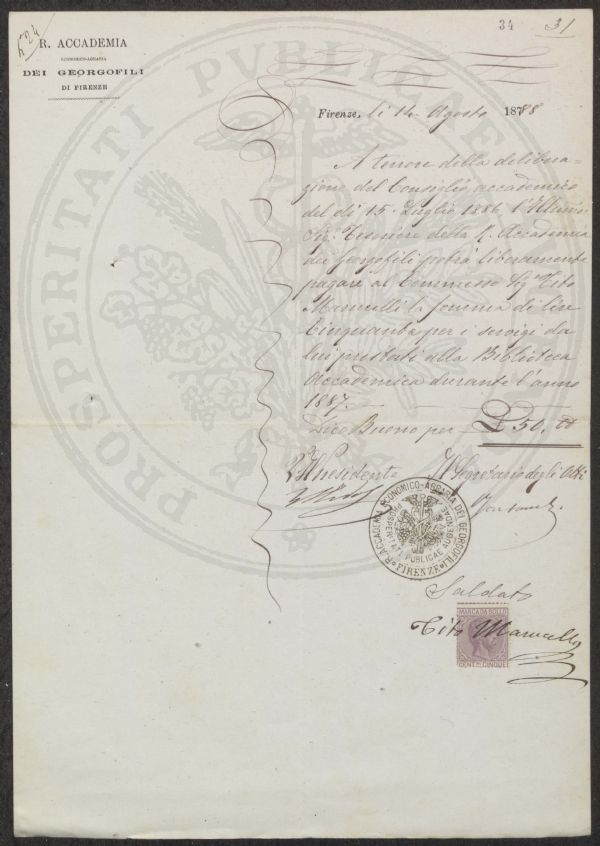 34
31
R. ACCADEMIA
ECONOMICO-AGRARIA
DEI GEORGOFILI
DI FIRENZE
Firenze, li 14 Agosto 1888
A tenore della delibera-
zione del Consiglio accademico
del dì 15. Luglio 1886 l'Illmo
Sig. Tesoriere della R. Accademia
dei Georgofili potrà liberamente
pagare al Commesso Sig. Tito
Marucelli la somma di lire
Cinquanta per i servigi da
lui prestati alla Biblioteca
Accademica durante l'anno
1887.
Dico Buono per £ 50.
Il Presidente Il Segretario degli Atti
R. ACCADEMIA ECONOMICO-AGRARIA DEI GEORGOFILI
FIRENZE
PROSPERITATI PUBLICAE AUGENDAE
Saldato
MARCA DA BOLLO
Tito Marucelli
CENT. CINQUE
PROSPERITATI PUBLICAE